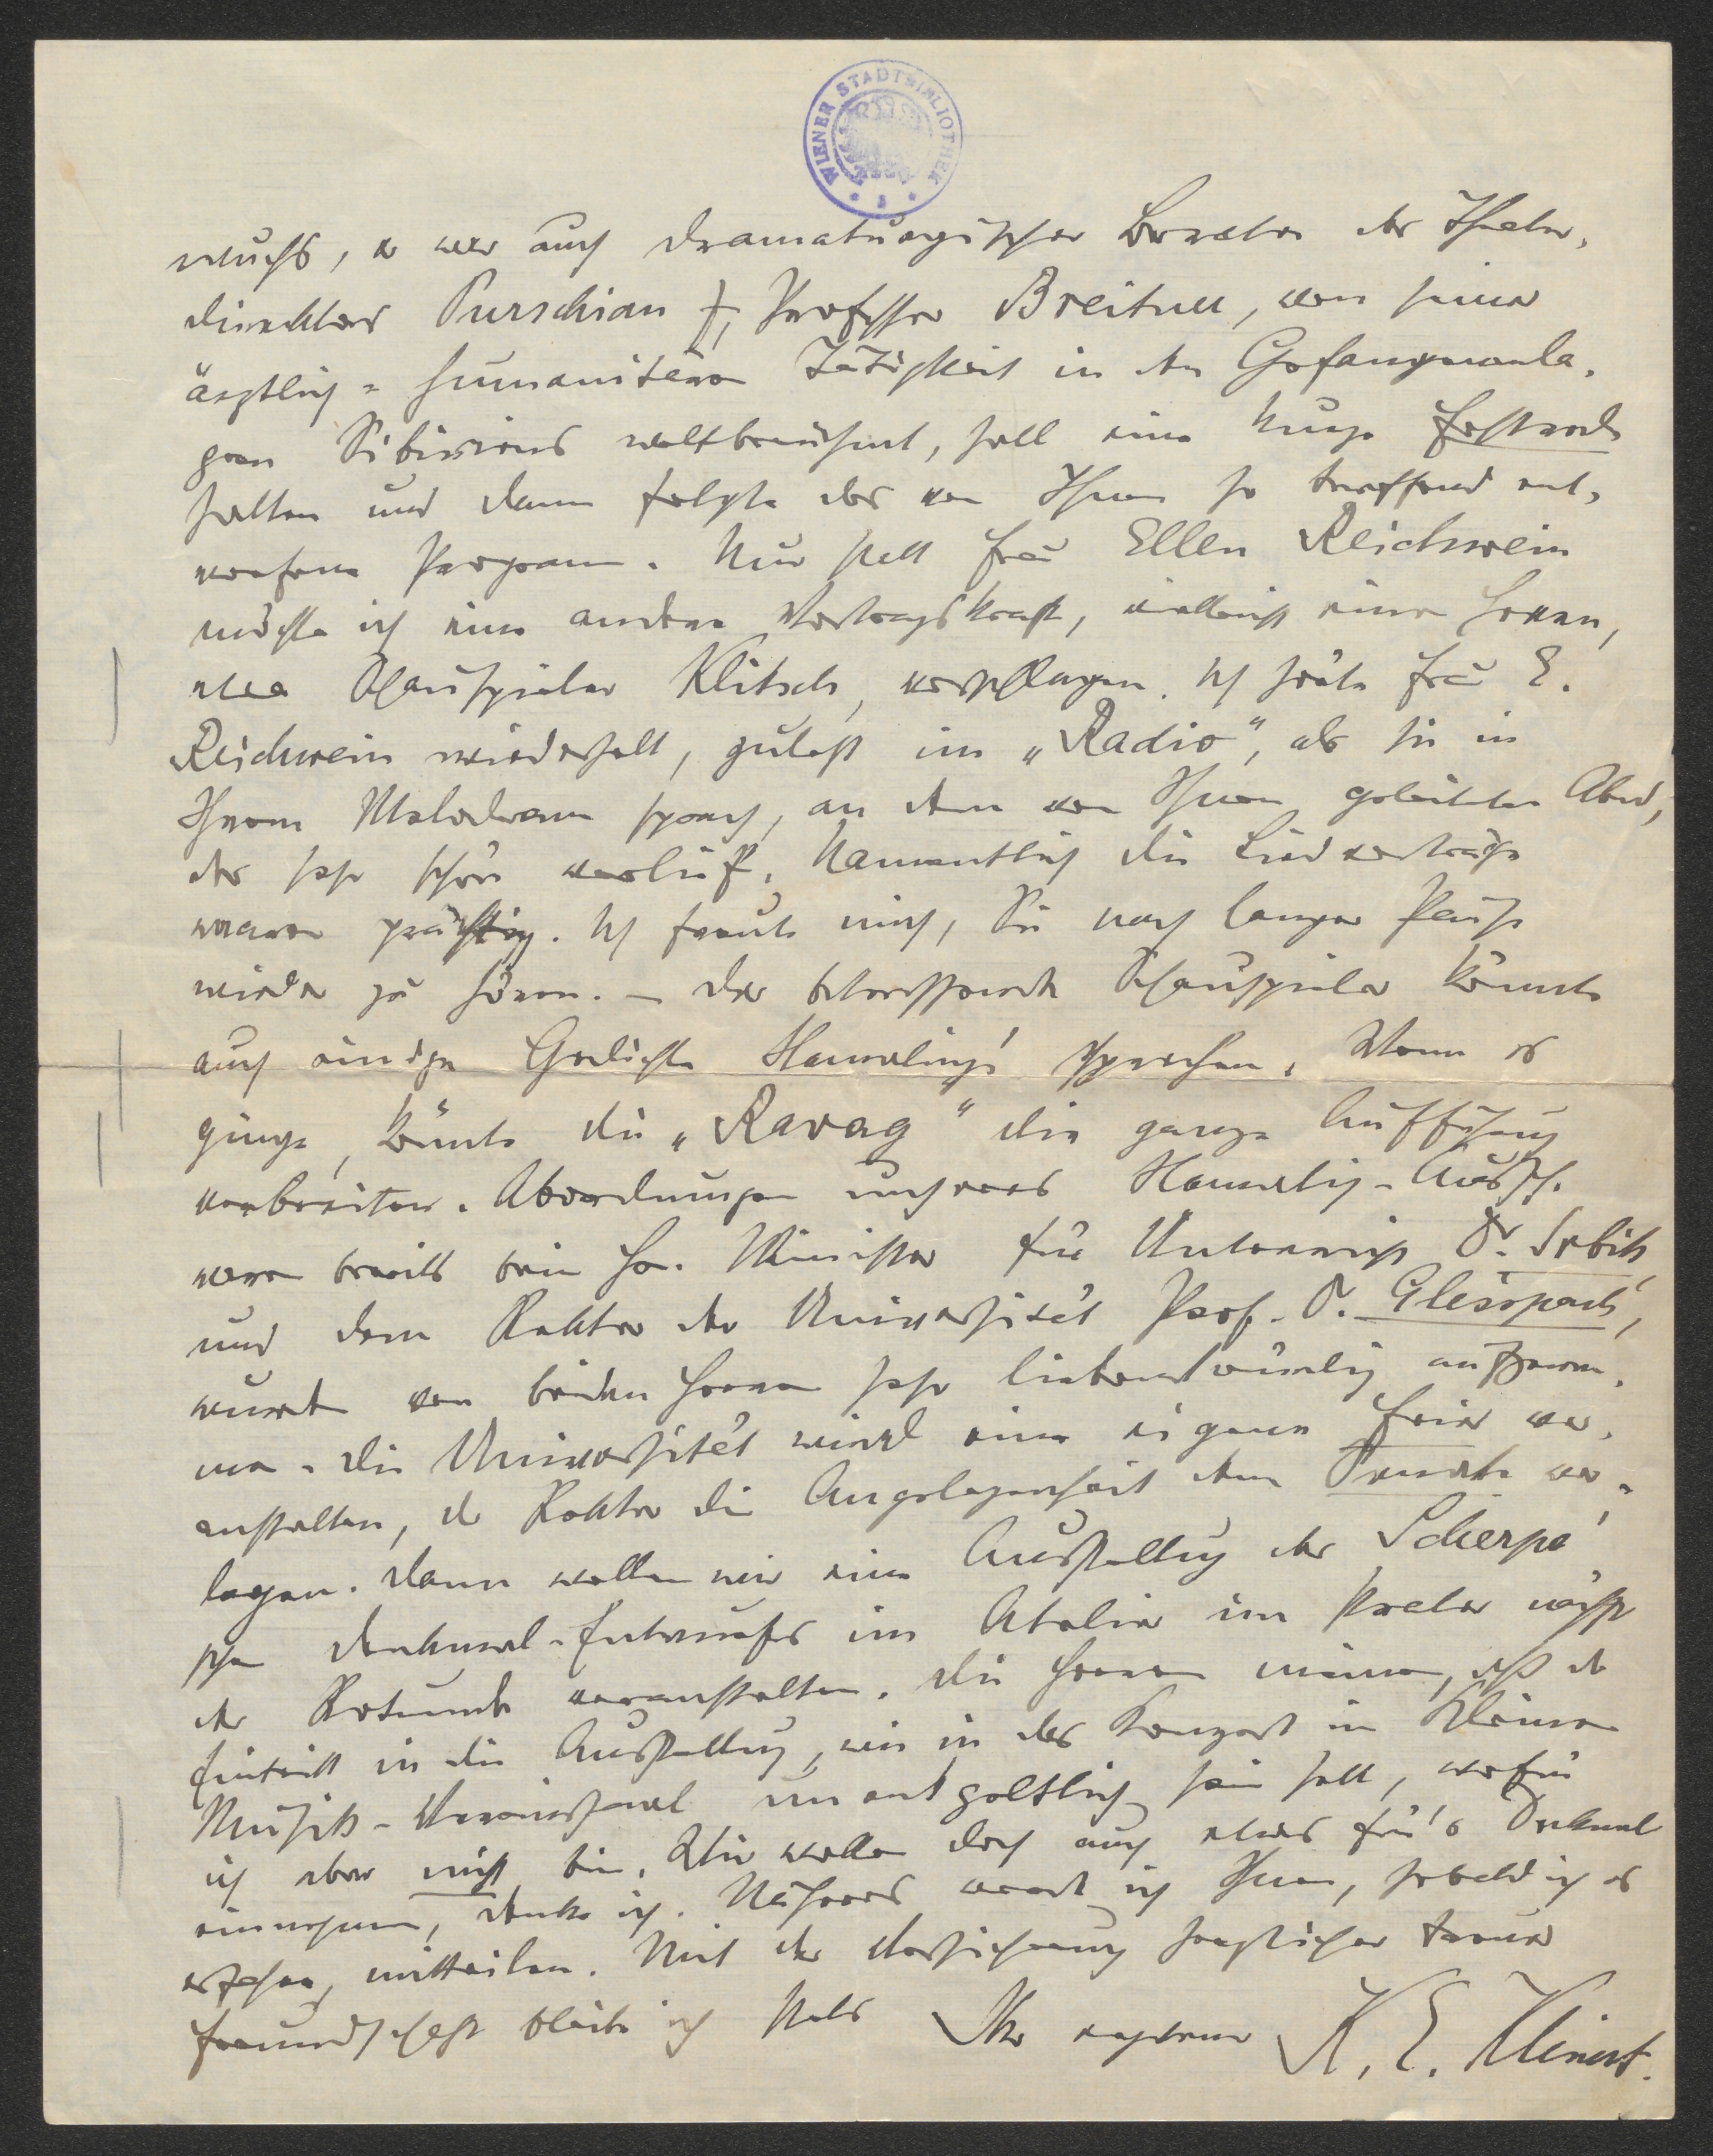 WIENER STADTBIBLIOTHEK
wuchs, er war auch dramaturgischer Berater des Theater-
direktors Purschian †, Professor Breitner, von seiner
ärztlich-humanitären Tätigkeit in den Gefangenenla-
gern Sibiriens weltberühmt, soll eine kurze Festrede
halten und dann folgte das von Ihnen so treffend ent-
worfene Programm. Nur statt Frau Ellen Reichwein
möchte ich eine andere Vortragskraft, vielleicht einen Herrn,
etwa Schauspieler Klitsch, vorschlagen. Ich hörte Frau E.
Reichwein wiederholt, zuletzt im „Radio“, als sie in
Ihrem Melodram sprach, an dem von Ihnen geleiteten Abend,
der sehr schön verlief. Namentlich die Liedvorträge
waren prächtig. Ich freute mich, Sie nach langer Pause
wieder zu hören. – Der betreffende Schauspieler könnte
auch einige Gedichte Hamerling's sprechen. Wenn es
ginge, könnte die „Ravag“ die ganze Aufführung
verbreiten. Abordnungen unseres Hamerling-Aussch.
waren bereits beim Hr. Minister für Unterricht Dr. Srbik
und dem Rektor der Universität Prof. Dr. Gleispach,
wurden von beiden Herren sehr liebenswürdig aufgenom-
men. Die Universität wird eine eigene Feier ver-
anstalten, der Rektor die Angelegenheit dem Senate vor-
legen. Dann wollen wir eine Ausstellung des Scherpe'
schen Denkmal-Entwurfes im Atelier im Prater nächst
der Rotunde veranstalten. Die Herren meinen, daß der
Eintritt in die Ausstellung, wie in das Konzert im Kleinen
Musik-Vereinssaal unentgeltlich sein soll, wofür
ich aber nicht bin. Wir wollen doch auch etwas für's Denkmal
einnehmen, denke ich. Näheres werde ich Ihnen, sobald ich es
erfahre, mitteilen. Mit der Versicherung herzlicher treuer
Freundschaft bleibe ich stets Ihr ergebener K. E. Klinert.